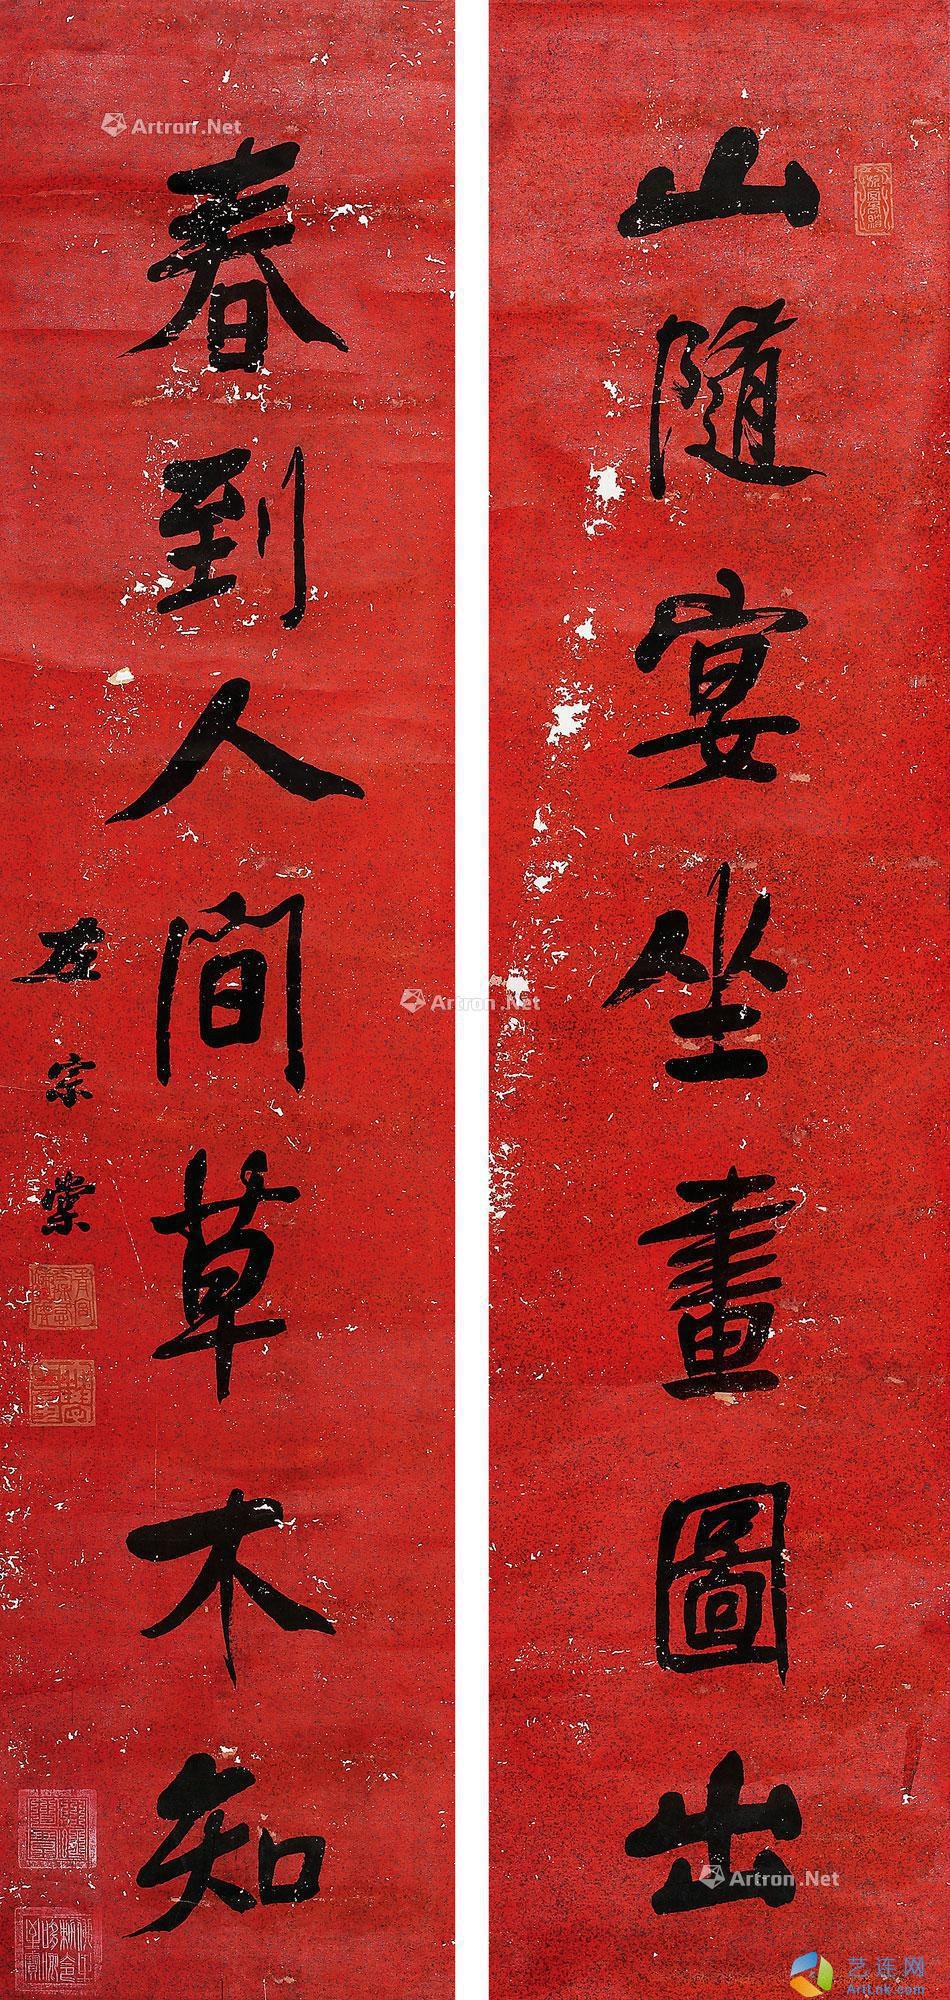 山隨宴坐畫圖出
春到人間草木知
左宗棠
Artron.Net
Artron.Net
Artron.Net
艺连网
ArtLnk.com